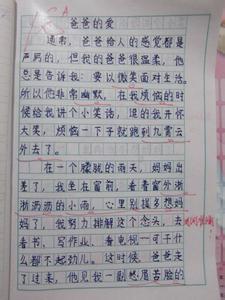 爸爸的爱
通常，爸爸给人的感觉都是
严厉的，但我的爸爸很温柔，他
总是告诉我：要以微笑面对生活。
所以他非常幽默，在我烦恼的时
候给我讲个小笑话，却我开怀
大笑，烦恼一下子就跑到九霄云
外去了。
在一个朦胧的雨天，妈妈出
差了，我坐在窗前，看着窗外淅
淅沥沥的小雨，心里别提多想妈
妈了，我努力排解这个念头，去
看书、写作业、看电视……可干什
么都不起劲儿。这时候，爸爸走
了过来，他见我一副愁眉苦脸的